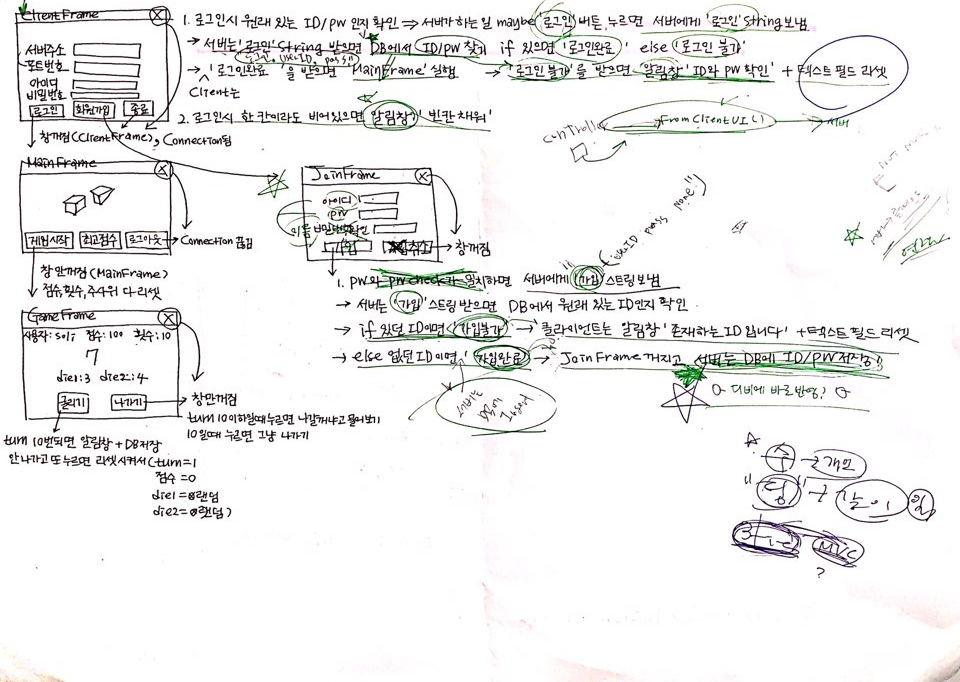 ClientFrame
서버주소
포트번호
아이디
비밀번호
로그인 회원가입 종료
창꺼짐(ClientFrame), Connection됨
1. 로그인시 원래 있는 ID/PW 인지 확인 ⇒ 서버가 하는 일 maybe '로그인' 버튼 누르면 서버에게 '로그인' String 보냄
→ 서버는 '로그인' String 받으면 DB에서 ID/PW 찾기 if 있으면 '로그인완료' else '로그인 불가'
→ '로그인완료'을 받으면 MainFrame' 실행 → '로그인 불가'를 받으면 '알림창' ID와 PW 확인' + 텍스트 필드 리셋
Client는
2. 로그인시 한 칸이라도 비어있으면 알림창 '빈칸 채워'
Controller
FromClientUI()
서버
MainFrame
게임시작 최고점수 로그아웃
Connection 끊김
창 안꺼짐 (MainFrame)
점수, 횟수, 주사위 다 리셋
JoinFrame
아이디
PW
이름
비밀번호확인
취소
창꺼짐
userID pass name
1. PW와 PW check가 일치하면 서버에게 '가입' 스트링 보냄
→ 서버는 '가입' 스트링 받으면 DB에서 원래 있는 ID인지 확인
→ if 있던 ID이면 '가입불가' → 클라이언트는 알림창 '존재하는 ID입니다' + 텍스트 필드 리셋
→ else 없던 ID이면 '가입완료' → JoinFrame 꺼지고, 서버는 DB에 ID/PW 저장!!
서버는
DB에
Insert
디비에 바로 반영?
GameFrame
사용자: soli 점수: 100 횟수: 10
7
die1: 3 die2: 4
굴리기 나가기
창 안꺼짐
turn 10 이하일때 누르면 나갈꺼냐고 물어보기
10일때 누르면 그냥 나가기
turn 10번되면 알림창 + DB저장
안 나가고 또 누르면 리셋시켜서 (turn = 1
점수 = 0
die1 = 랜덤
die2 = 랜덤)
MVC
?